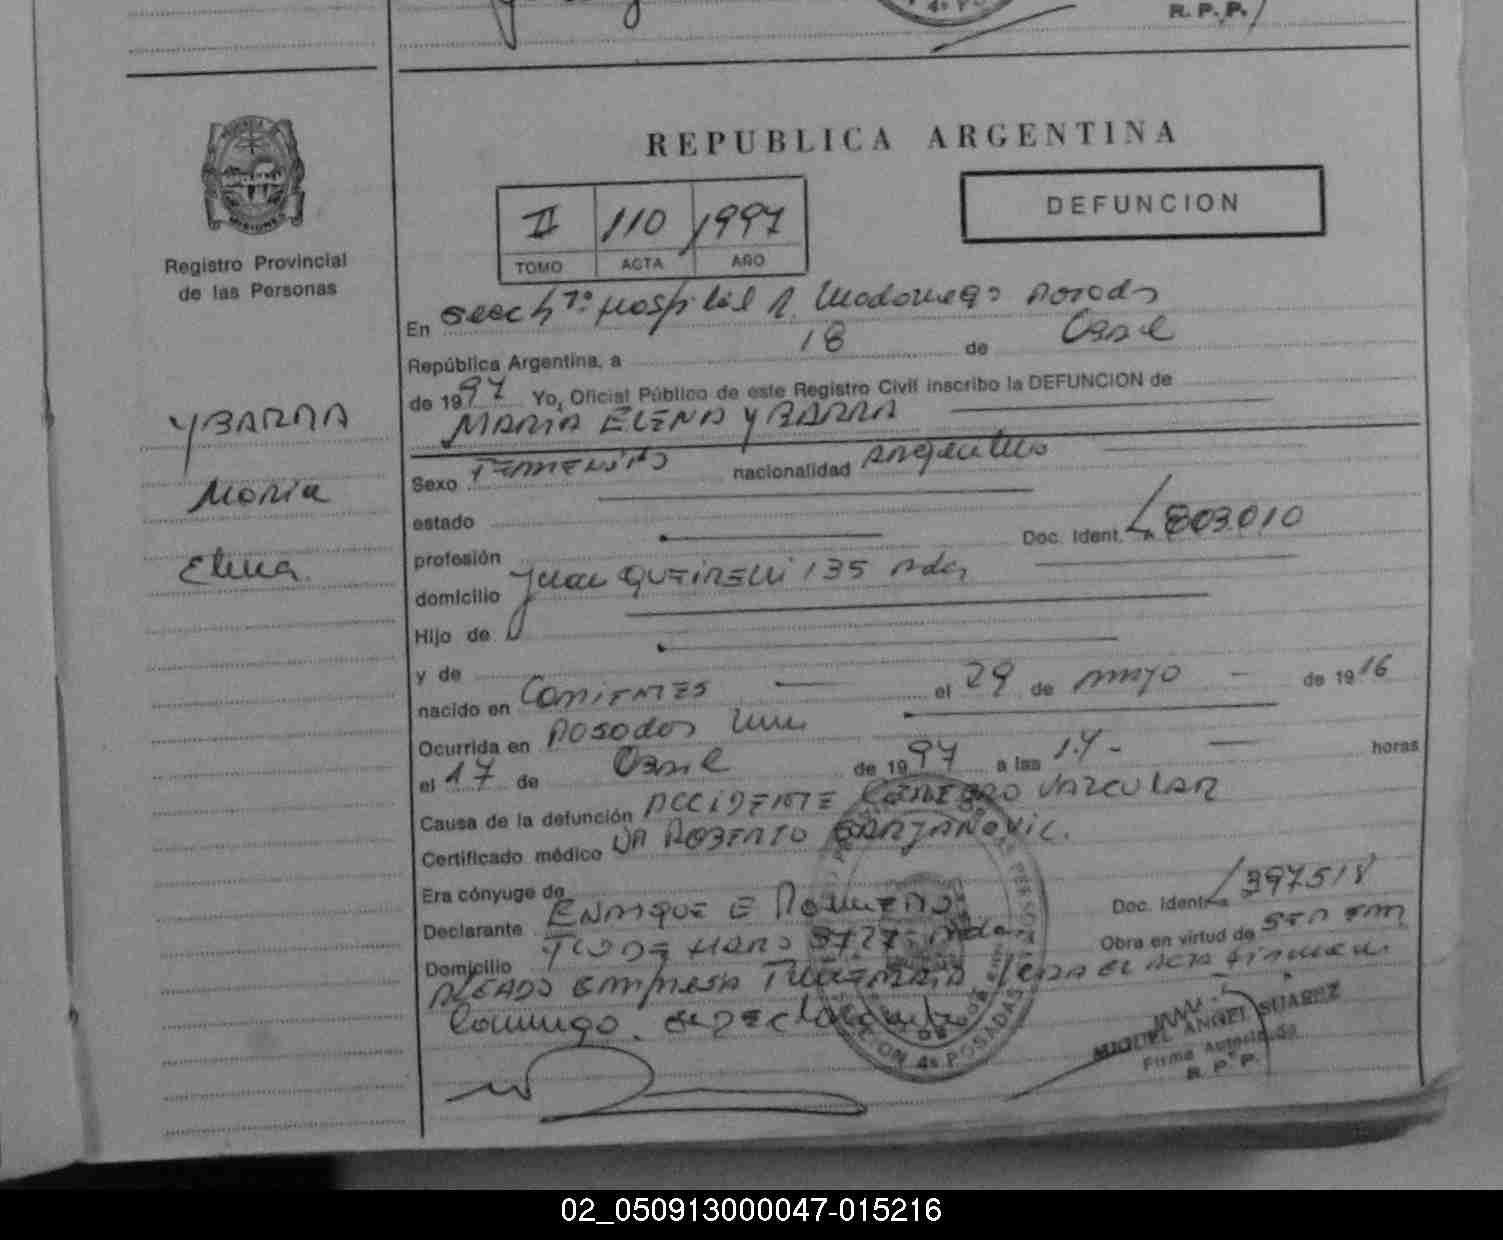 4ª PO
R. P. P.
REPUBLICA ARGENTINA
DEFUNCION
II 110 1997
TOMO ACTA AÑO
MISIONES
Registro Provincial
de las Personas
En Secc 7ª Hospital R. Madariaga Posadas
República Argentina, a 18 de Abril
de 1997 Yo, Oficial Público de este Registro Civil inscribo la DEFUNCION de
MARIA ELENA YBARRA
YBARRA
Maria
Elena.
Sexo FEMENINO nacionalidad Argentina
estado
profesión Doc. Ident. 803.010
domicilio Juan QUEIRELLI 135 Pdas
Hijo de
y de
nacido en CORRIENTES el 29 de mayo de 1916
Ocurrida en POSADAS Mnes
el 17 de Abril de 1997 a las 14 - horas
Causa de la defunción ACCIDENTE CEREBRO VASCULAR
Certificado médico DR ROBERTO
Era cónyuge de
Declarante ENRIQUE E ROMERO Doc. Ident. 397518
Domicilio 3727 Pdas Obra en virtud de SER EM
PLEADO EMPRESA FUNERARIA Leida el acta firman
conmigo. el declarante
SECCION 4ª POSADAS
MIGUEL ANGEL SUAREZ
Firma Autorizada
R. P. P.
02_050913000047-015216